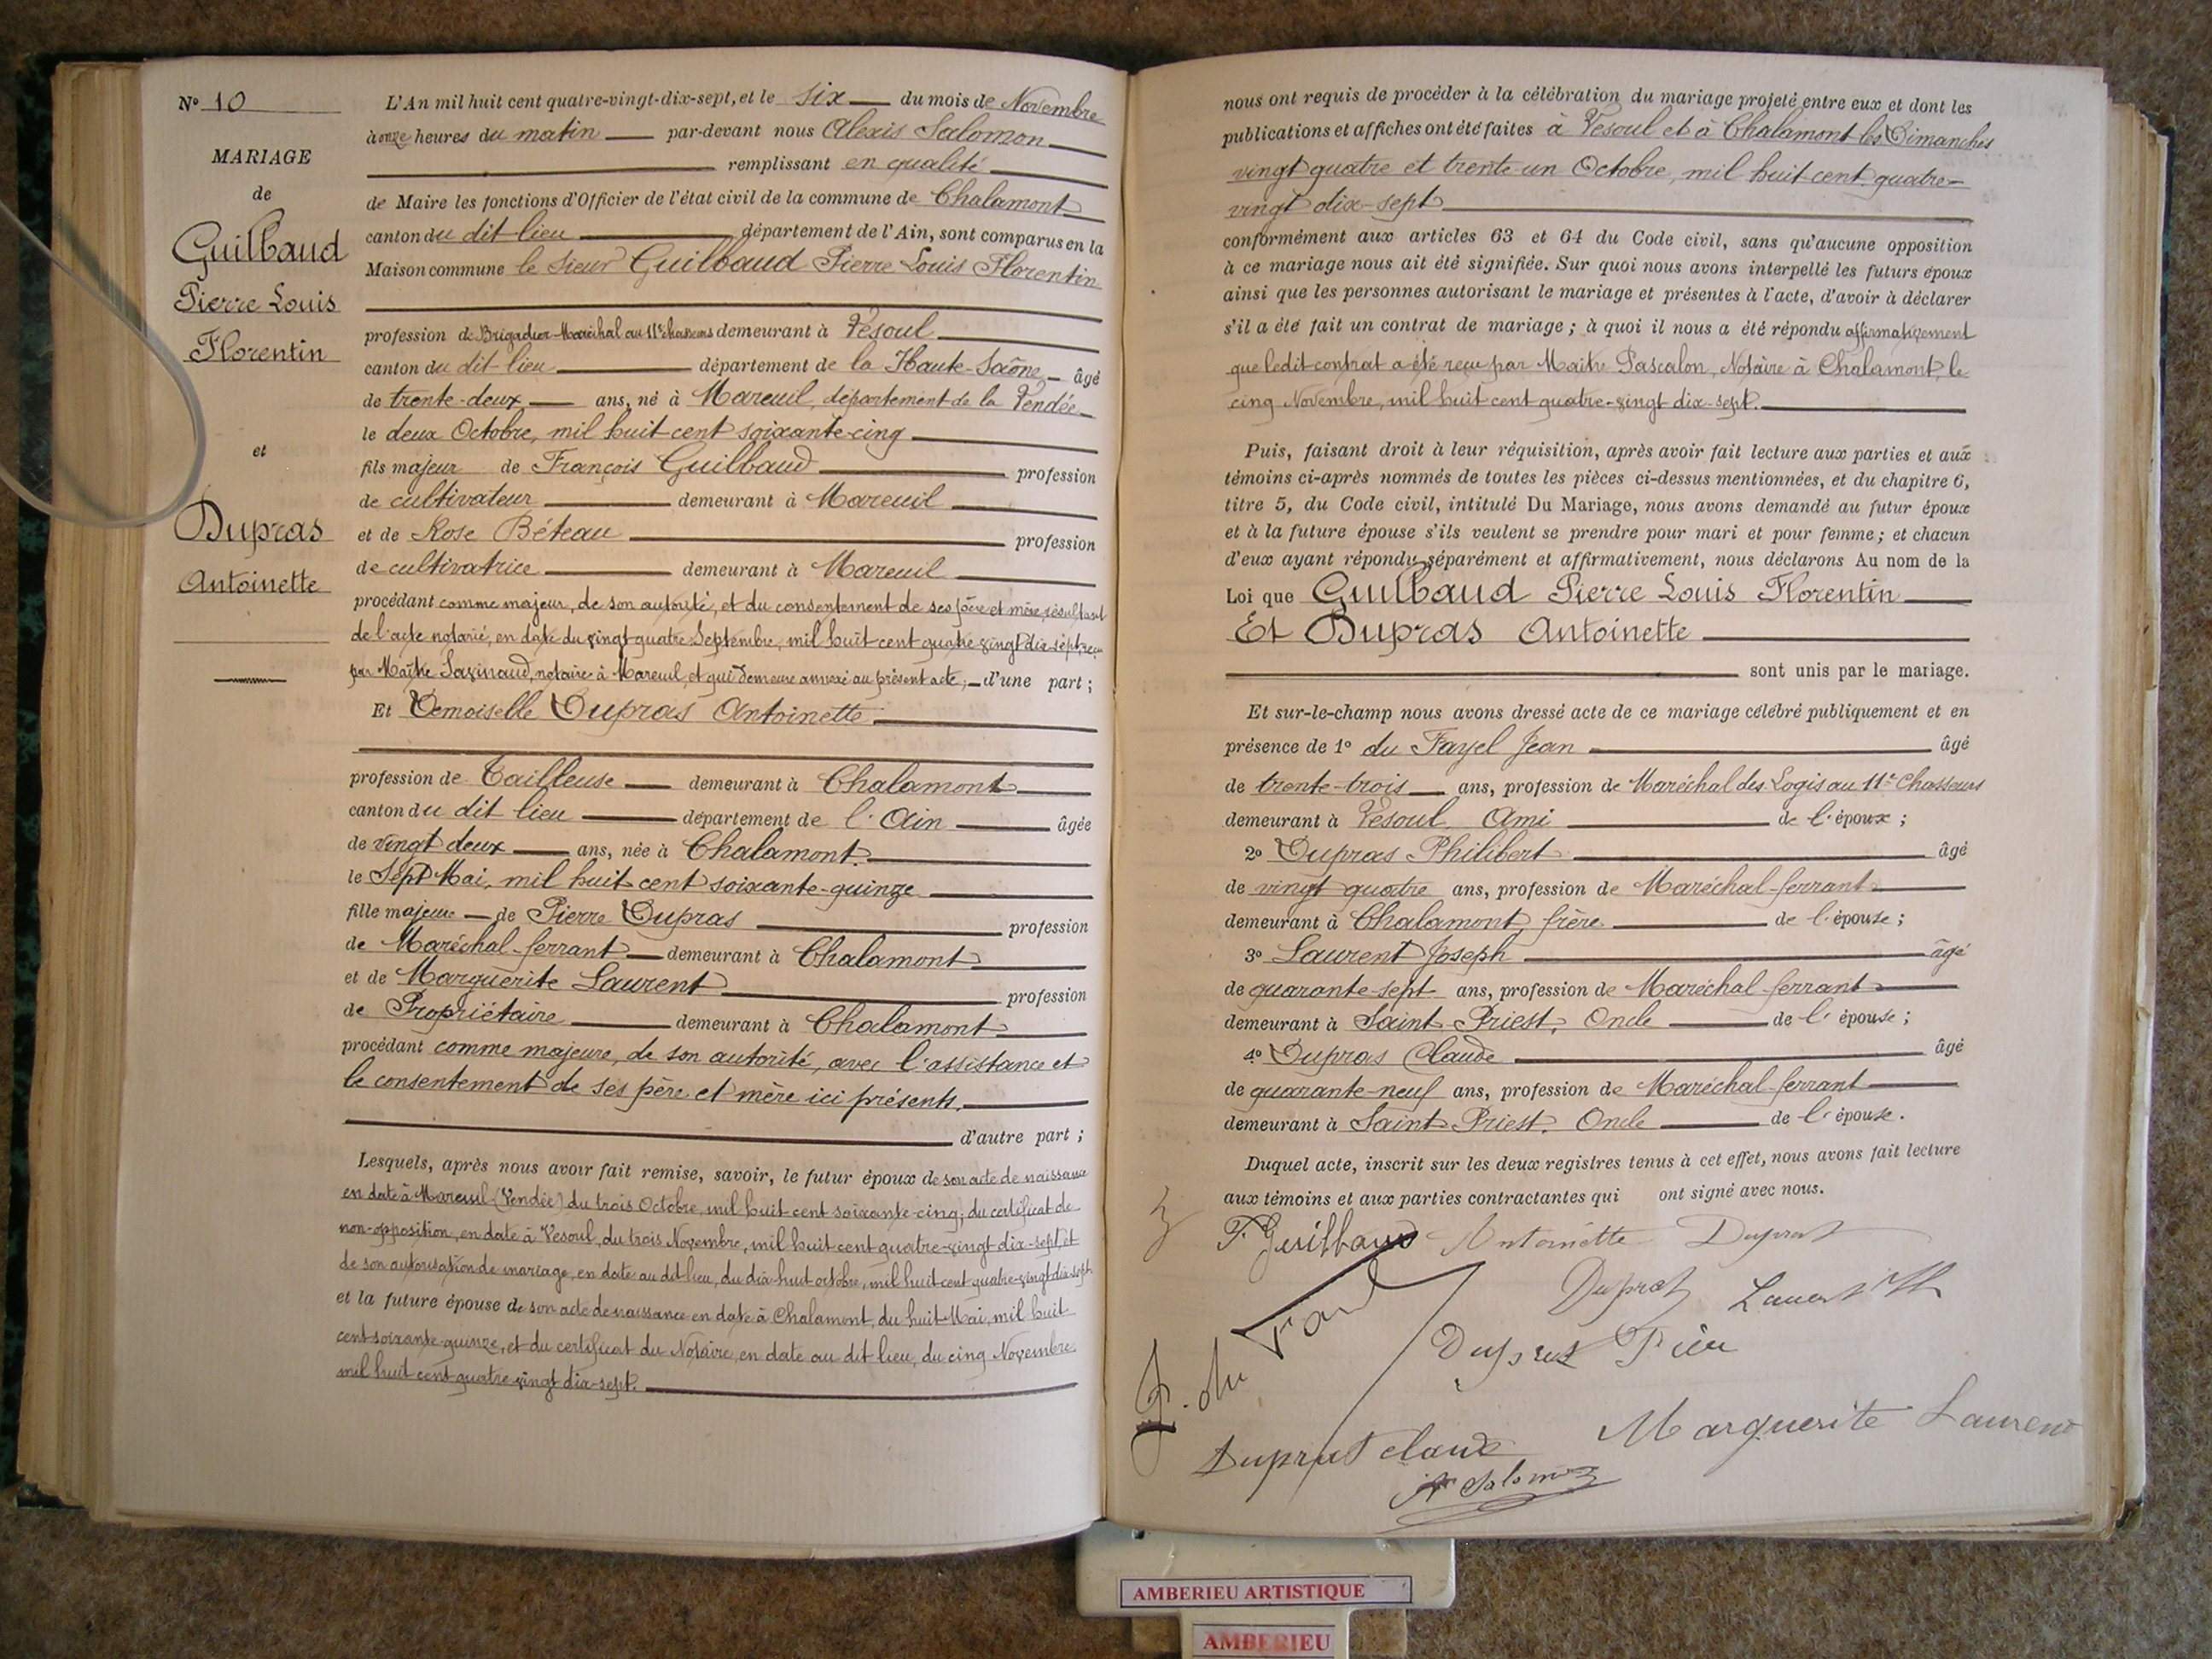 N° 10
MARIAGE
de
Guilbaud
Pierre Louis
Florentin
et
Dupras
Antoinette
L'An mil huit cent quatre-vingt-dix-sept, et le six du mois de Novembre
à onze heures du matin par-devant nous Alexis Salomon
remplissant en qualité
de Maire les fonctions d'Officier de l'état civil de la commune de Chalamont
canton du dit lieu département de l'Ain, sont comparus en la
Maison commune le sieur Guilbaud Pierre Louis Florentin
profession de Brigadier-Maréchal au 11e chasseurs demeurant à Vesoul
canton du dit-lieu département de la Haute-Saône âgé
de trente-deux ans, né à Mareuil, département de la Vendée
le deux Octobre, mil huit cent soixante-cinq
fils majeur de François Guilbaud profession
de cultivateur demeurant à Mareuil
et de Rose Béteau profession
de cultivatrice demeurant à Mareuil
procédant comme majeur, de son autorité, et du consentement de ses père et mère, résultant
de l'acte notarié, en date du vingt quatre Septembre, mil huit cent quatre vingt dix sept, reçu
par Maître notaire à Mareuil, et qui demeure annexé au présent acte, d'une part ;
Et Demoiselle Dupras Antoinette
profession de Tailleuse demeurant à Chalamont
canton du dit lieu département de l'Ain âgée
de vingt deux ans, née à Chalamont.
le Sept Mai, mil huit cent soixante-quinze
fille majeure de Pierre Dupras profession
de Maréchal-ferrant demeurant à Chalamont
et de Marguerite Laurent profession
de Propriétaire demeurant à Chalamont
procédant comme majeure, de son autorité, avec l'assistance et
le consentement de ses père et mère ici présents.
d'autre part ;
Lesquels, après nous avoir fait remise, savoir, le futur époux de son acte de naissance
en date à Mareuil (Vendée) du trois Octobre, mil huit cent soixante-cinq ; du certificat de
non-opposition, en date à Vesoul, du trois Novembre, mil huit cent quatre-vingt dix-sept, et
de son autorisation de mariage, en date au dit lieu, du dix huit octobre, mil huit cent quatre-vingt dix sept.
et la future épouse de son acte de naissance en date à Chalamont, du huit Mai, mil huit
cent soixante quinze, et du certificat du Notaire, en date au dit lieu, du cinq Novembre
mil huit cent quatre vingt dix-sept.
nous ont requis de procéder à la célébration du mariage projeté entre eux et dont les
publications et affiches ont été faites à Vesoul et à Chalamont les Dimanches
vingt quatre et trente-un Octobre, mil huit cent quatre-
vingt dix-sept
conformément aux articles 63 et 64 du Code civil, sans qu'aucune opposition
à ce mariage nous ait été signifiée. Sur quoi nous avons interpellé les futurs époux
ainsi que les personnes autorisant le mariage et présentes à l'acte, d'avoir à déclarer
s'il a été fait un contrat de mariage ; à quoi il nous a été répondu affirmativement
que ledit contrat a été reçu par Maître Pascalon, Notaire à Chalamont, le
cinq Novembre, mil huit cent quatre-vingt dix-sept.
Puis, faisant droit à leur réquisition, après avoir fait lecture aux parties et aux
témoins ci-après nommés de toutes les pièces ci-dessus mentionnées, et du chapitre 6,
titre 5, du Code civil, intitulé Du Mariage, nous avons demandé au futur époux
et à la future épouse s'ils veulent se prendre pour mari et pour femme ; et chacun
d'eux ayant répondu séparément et affirmativement, nous déclarons Au nom de la
Loi que Guilbaud Pierre Louis Florentin
Et Dupras Antoinette
sont unis par le mariage.
Et sur-le-champ nous avons dressé acte de ce mariage célébré publiquement et en
présence de 1° du Fayel Jean âgé
de trente-trois ans, profession de Maréchal des Logis au 11e Chasseurs
demeurant à Vesoul, Ami de l'époux ;
2° Dupras Philibert âgé
de vingt quatre ans, profession de Maréchal-ferrant
demeurant à Chalamont, frère de l'épouse ;
3° Laurent Joseph âgé
de quarante-sept ans, profession de Maréchal-ferrant
demeurant à Saint-Priest, Oncle de l'épouse ;
4° Dupras Claude âgé
de quarante-neuf ans, profession de Maréchal-ferrant
demeurant à Saint-Priest. Oncle de l'épouse.
Duquel acte, inscrit sur les deux registres tenus à cet effet, nous avons fait lecture
aux témoins et aux parties contractantes qui ont signé avec nous.
P. Guilbaud Antoinette Duprat
Duprat Laurent
J. du
Marguerite Laurent
Duprat claude
A Salomon
AMBERIEU ARTISTIQUE
AMBERIEU